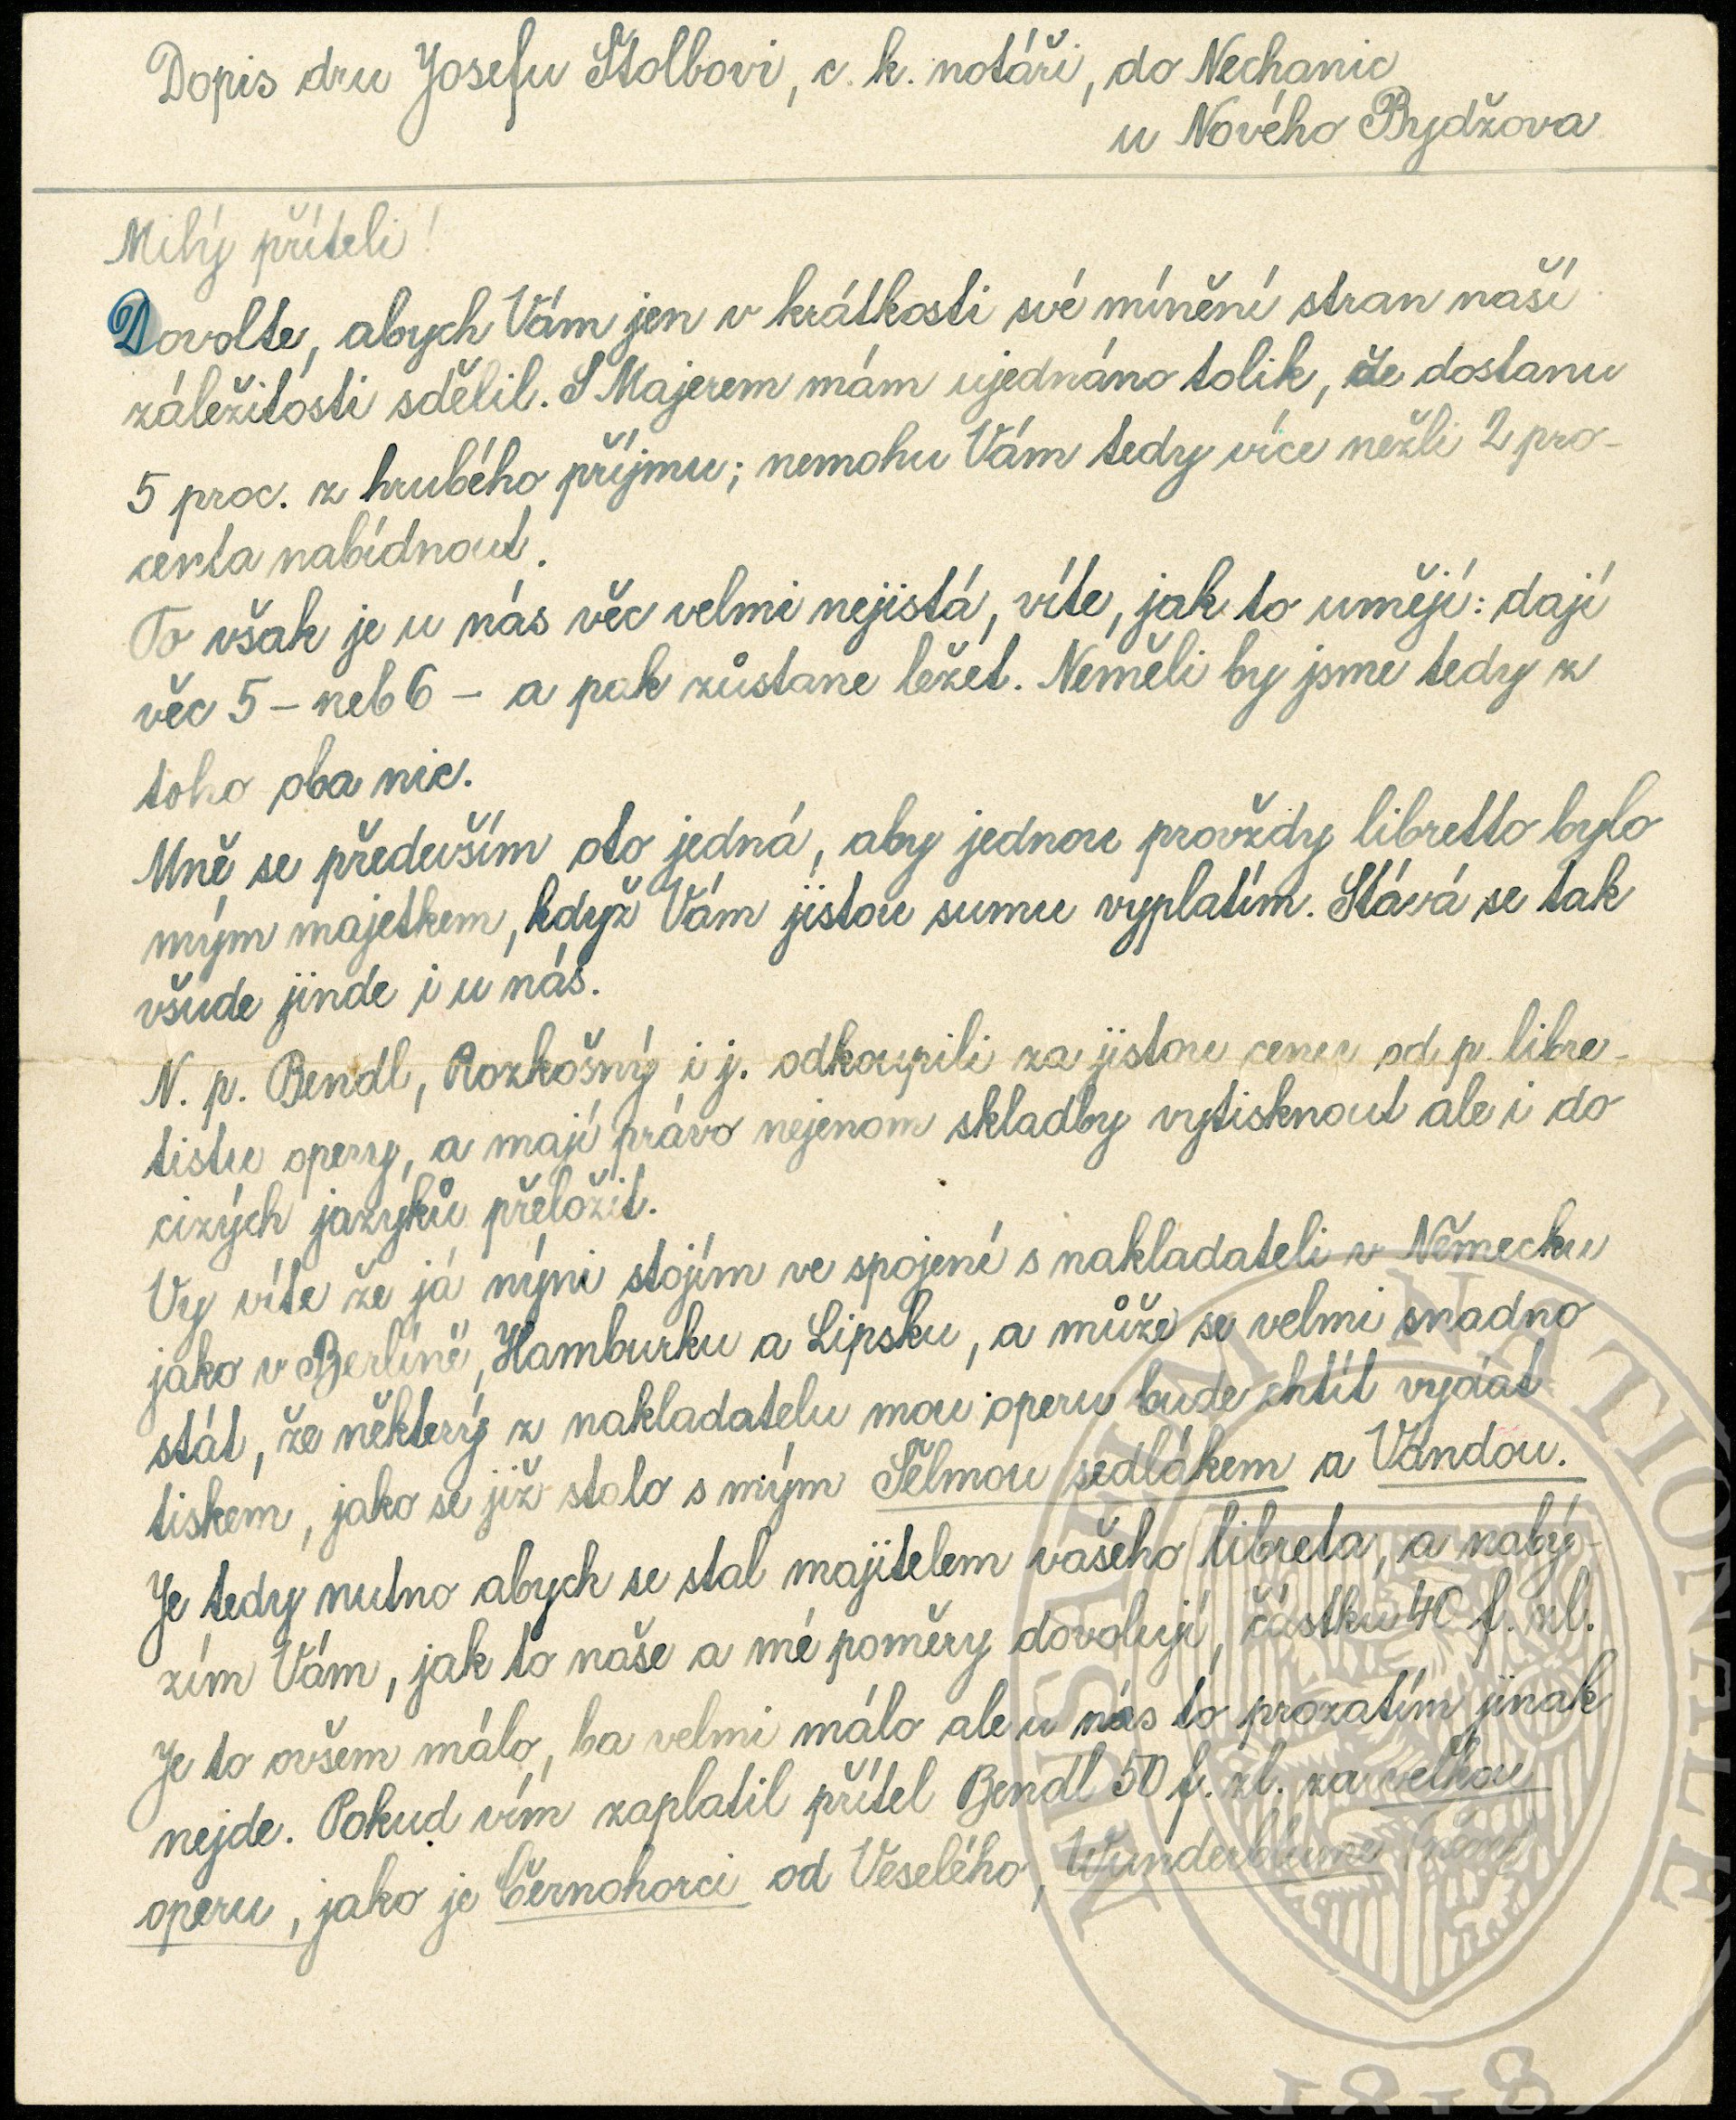 Dopis dru Josefu Štolbovi, c. k. notáři, do Nechanic
u Nového Bydžova
Milý příteli!
Dovolte, abych Vám jen v krátkosti své mínění stran naší
záležitosti sdělil. S Majerem mám ujednáno tolik, že dostanu
5 proc. z hrubého příjmu; nemohu Vám tedy více nežli 2 pro-
centa nabídnout.
To však je u nás věc velmi nejistá, víte, jak to umějí: dají
věc 5 – neb 6 – a pak zůstane ležet. Neměli by jsme tedy z
toho oba nic.
Mně se především oto jedná, aby jednou provždy libretto bylo
mým majetkem, když Vám jistou sumu vyplatím. Stává se tak
všude jinde i u nás.
N. p. Bendl, Rozkošný i j. odkoupili za jistou cenu od p. libre-
tistu opery, a mají právo nejenom skladby vytisknout ale i do
cizých jazyků přeložit.
Vy víte že já nýni stojím ve spojení s nakladateli v Německu
jako v Berlíně, Hamburku a Lipsku, a může se velmi snadno
stát, že některý z nakladatelu mou operu bude chtít vydat
tiskem, jako se již stalo s mým Šelmou sedlákem a Vandou.
Je tedy nutno abych se stal majitelem vašeho libreta, a nabý-
zím Vám, jak to naše a mé poměry dovolují, částku 40 f. zl.
Je to ovšem málo, ba velmi málo ale u nás to prozatím jinak
nejde. Pokud vím zaplatil přítel Bendl 50 f. zl. za velkou
operu, jako je Černohorci od Veselého, Wunderblume
MUSEUM NATIONALE
1818